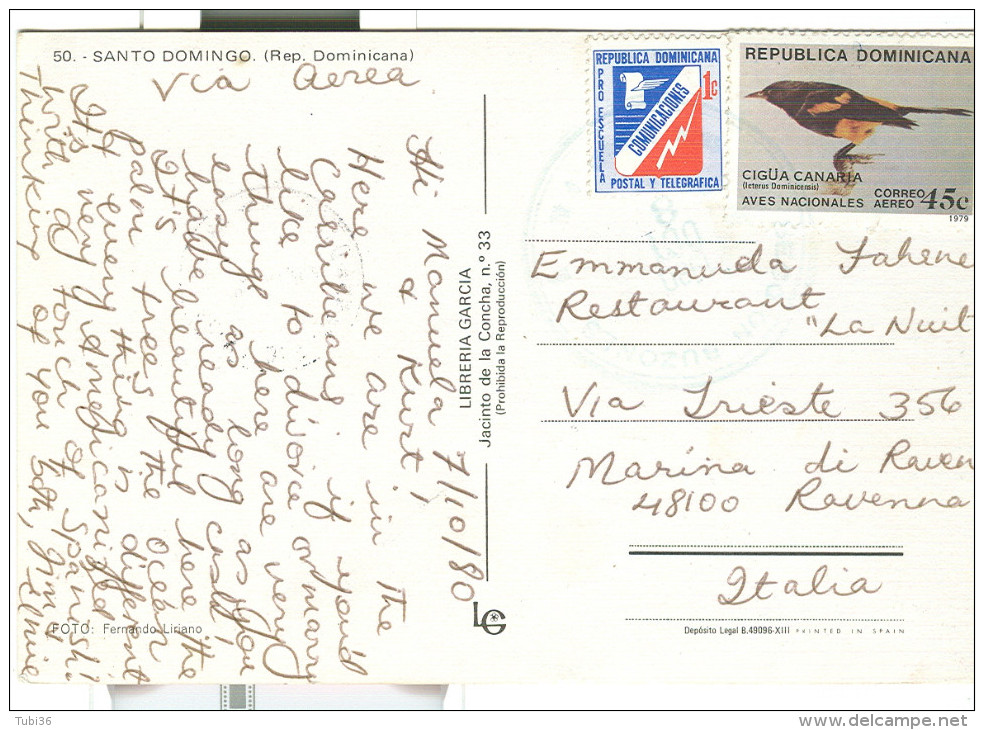 50. - SANTO DOMINGO. (Rep. Dominicana)
Via Aerea
7/10/80
Hi Manuela
& Kurt!
Here we are in the
Caribbean if you'd
like to divorce or marry
things here are very
easy as long as you
have ready cash!
It's beautiful here the
palm trees the ocean
& every thing is different
It very Americanized
is with a touch of Spanish!
Thinking of you both,
FOTO: Fernando Liriano
LIBRERIA GARCIA
Jacinto de la Concha, n.º 33
(Prohibida la Reproducción)
LG
REPUBLICA DOMINICANA
PRO ESCUELA
COMUNICACIONES
1c
POSTAL Y TELEGRAFICA
REPUBLICA DOMINICANA
CIGÜA CANARIA
(Icterus Dominicensis)
AVES NACIONALES
CORREO
AEREO 45c
1979
Restaurant
"La Nuit
Via Trieste 356
Marina di Raven
48100 Ravenna
Italia
Depósito Legal B.49096-XIII PRINTED IN SPAIN
Tubi36
www.delcampe.net